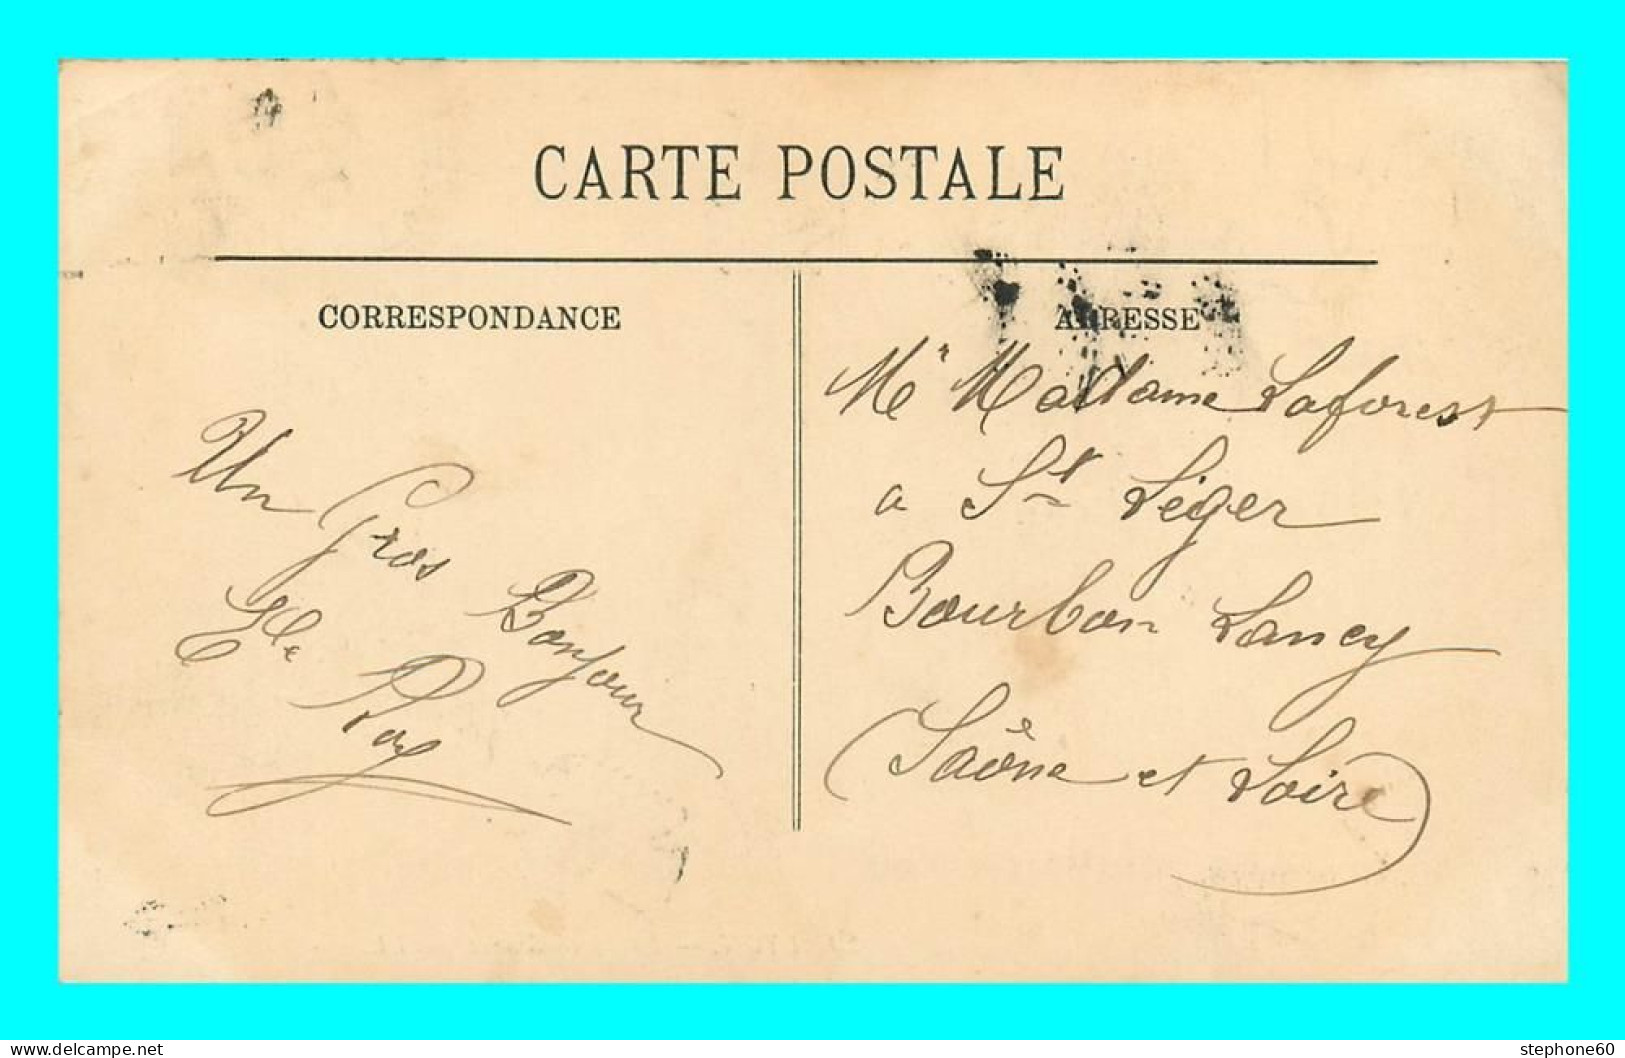 CARTE POSTALE
CORRESPONDANCE
Un Gros Bonjour
Roy
ADRESSE
Mr Madame Laforest
a St Léger
Bourbon Lancy
(Saône et Loire)
www.delcampe.net
stephone60